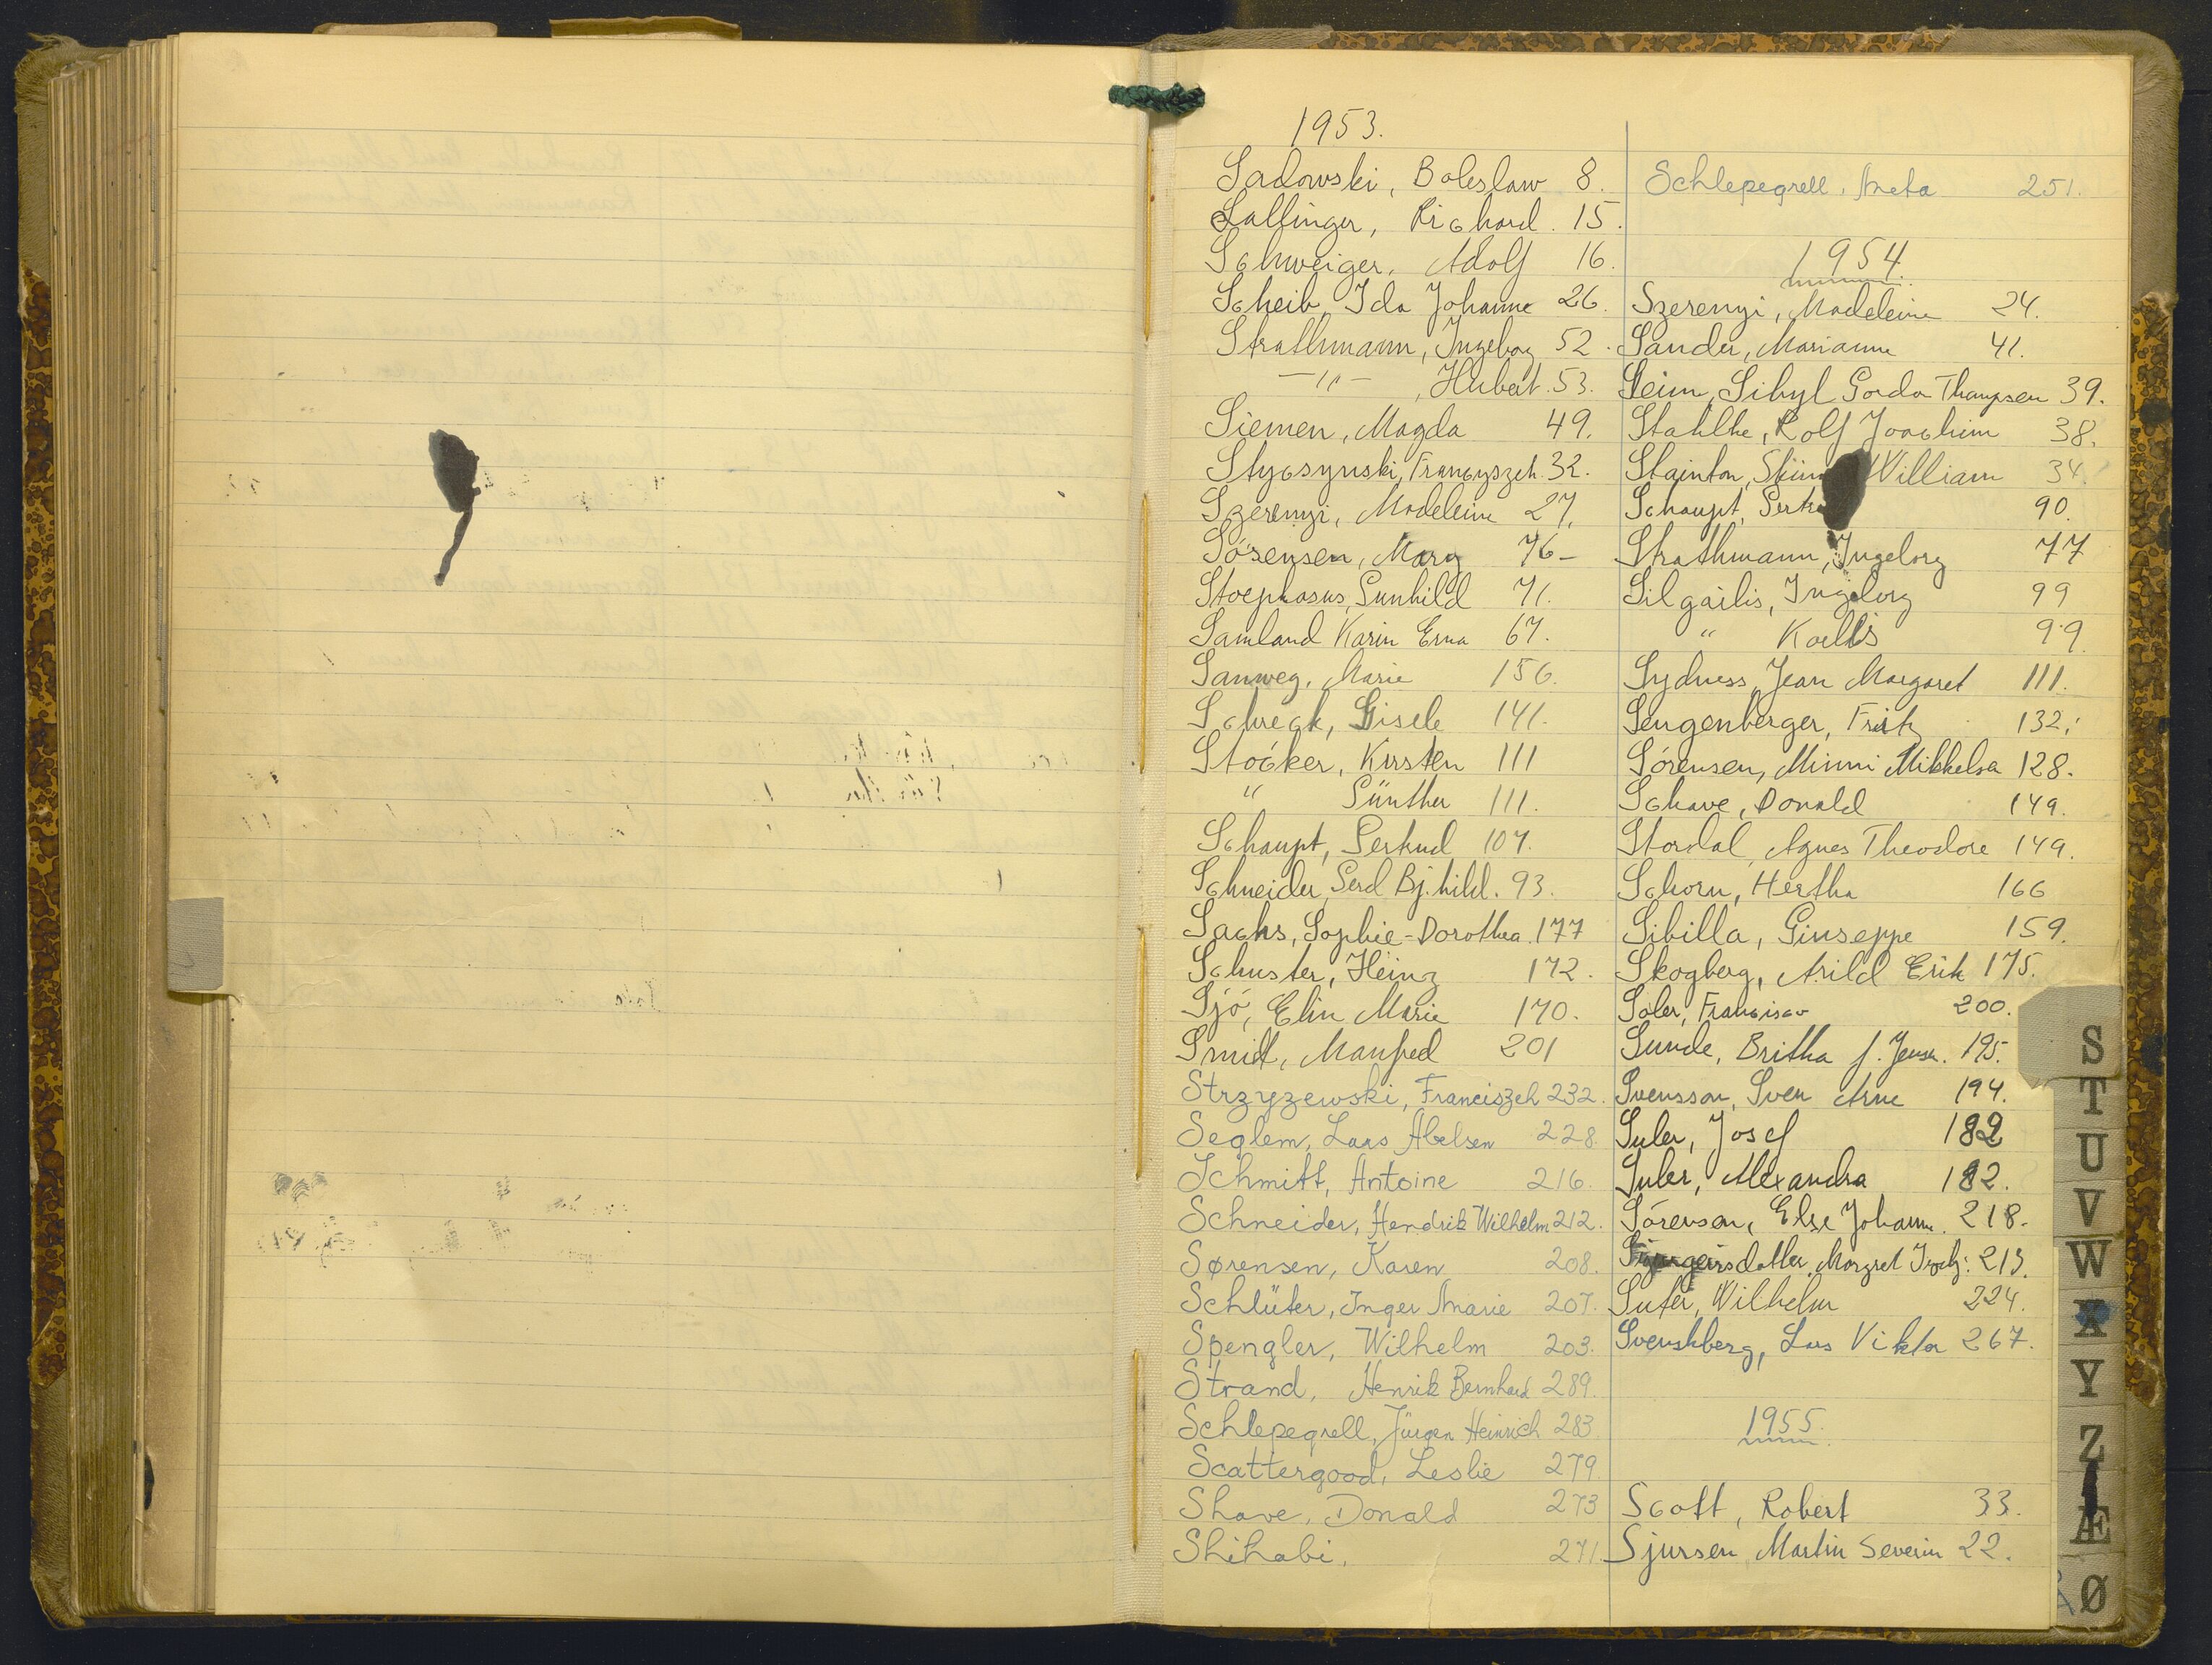 1953.
Sadowski, Boleslaw 8.
Sallinger, Richard. 15.
Schweiger, Adolf 16.
Scheib, Ida Johanne 26.
Strathmann, Ingebog 52.
—"— , Hubert. 53.
Siemen, Magda 49.
Stycsynski, Francyszek. 32.
Szerenyi, Madeleine 27.
Sörensen, Mary 76-
Stoephasus, Gunhild 71.
Samland Karin Erna 67.
Sanweg, Marie 156.
Schreck, Gisele 141.
Stöcker, Kirsten 111
" Günther 111.
Schaupt, Gertrud 107.
Schneider, Gerd Bj. hild. 93.
Sachs, Sophie-Dorothea. 177
Schuster, Heinz 172.
Sjö, Elin Marie 170.
Smidt, Manfred 201
Strzyzewski, Franciszek 232.
Seglem, Lars Abelsen 228.
Schmitt, Antoine 216.
Schneider, Hendrik Wilhelm 212.
Sørensen, Karen 208.
Schlüter, Inger Marie 207.
Spengler, Wilhelm 203.
Strand, Henrik Bernhard 289.
Schlepegrell, Jürgen Heinrich 283.
Scattergood, Leslie 279.
Shave, Donald 273
Shihabi, 271.
Schlepegrell, Aneta 251.
1954.
Szerenyi, Madeleine 24.
Sander, Marianne 41.
Seim, Sibyl Gorda Thampsen 39.
Stahlke, Rolf Joachim 38.
Stainton, William 34.
Schaupt, 90.
Strathmann, Ingeborg 77
Silgailis, Ingeborg 99
" 99
Sydness, Jean Margaret 111.
Sengenberger, Fritz 132.
Sörensen, Minni Mikkelsa 128.
Schave, Donald 149.
Stordal, Agnes Theodore 149.
Schorn, Hertha 166
Sibilla, Giuseppe 159.
Skogberg, Arild Erik 175.
Soler, Francisco 200.
Sunde, Britha f. Jensen. 195.
Svensson, Sven Arne 194.
Suler, Josef 182
Suler, Alexandra 182.
Sörensen, Else Johanne. 218.
Margret 213.
Suter, Wilhelm 224.
Svenskberg, Lars Viktor 267.
1955.
Scott, Robert 33.
Sjursen, Martin Severin 22.
S
T
U
V
W
X
Y
Z
Æ
Ø